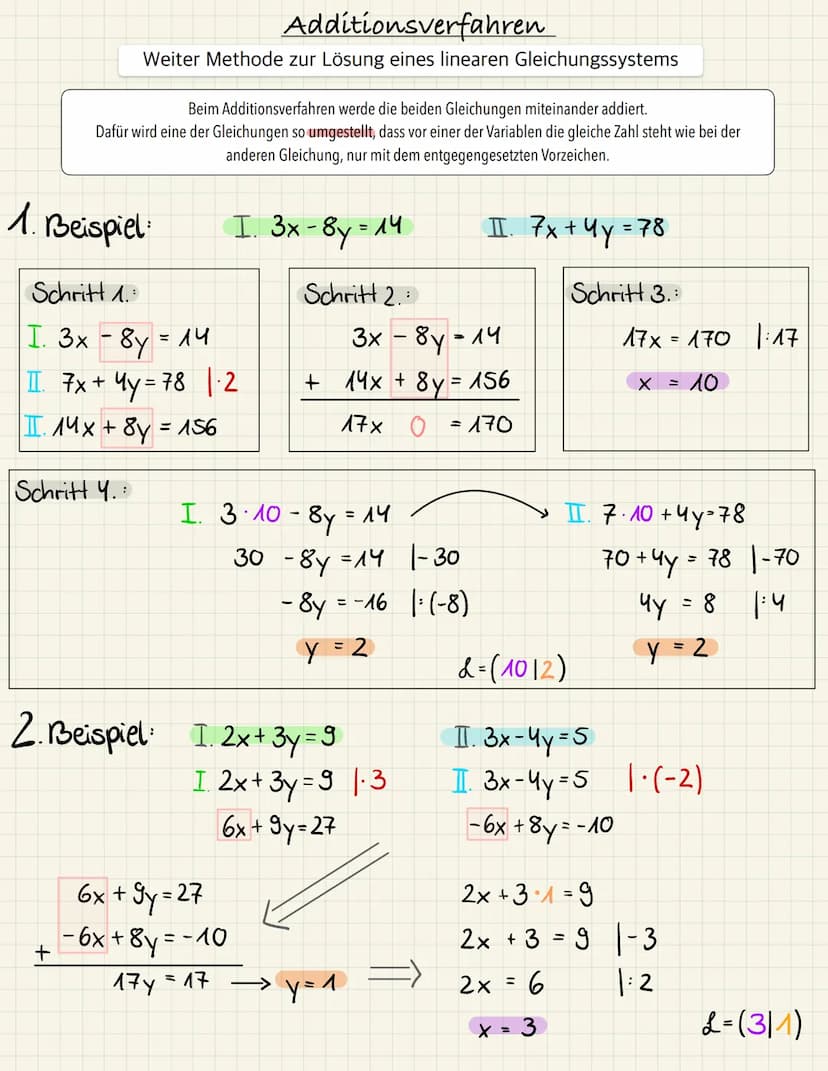 Additionsverfahren
Weiter Methode zur Lösung eines linearen Gleichungssystems
Beim Additionsverfahren werde die beiden Gleichungen miteinander addiert.
Dafür wird eine der Gleichungen so umgestellt, dass vor einer der Variablen die gleiche Zahl steht wie bei der
anderen Gleichung, nur mit dem entgegengesetzten Vorzeichen.
1. Beispiel: I. 3x - 8y = 14 II. 7x + 4y = 78
Schritt 1.:
I. 3x - 8y = 14
II. 7x + 4y = 78 |·2
II. 14x + 8y = 156
Schritt 2.:
3x - 8y = 14
+ 14x + 8y = 156
17x 0 = 170
Schritt 3.:
17x = 170 |:17
x = 10
Schritt 4.:
I. 3·10 - 8y = 14
30 - 8y = 14 |-30
-8y = -16 |:(-8)
y = 2
II. 7·10 + 4y = 78
70 + 4y = 78 |-70
4y = 8 |:4
y = 2
L = (10|2)
2. Beispiel: I. 2x + 3y = 9 II. 3x - 4y = 5
I. 2x + 3y = 9 |·3
6x + 9y = 27
II. 3x - 4y = 5 |·(-2)
-6x + 8y = -10
6x + 9y = 27
+ -6x + 8y = -10
17y = 17 → y = 1 ⇒
2x + 3·1 = 9
2x + 3 = 9 |-3
2x = 6 |:2
x = 3
L = (3|1)